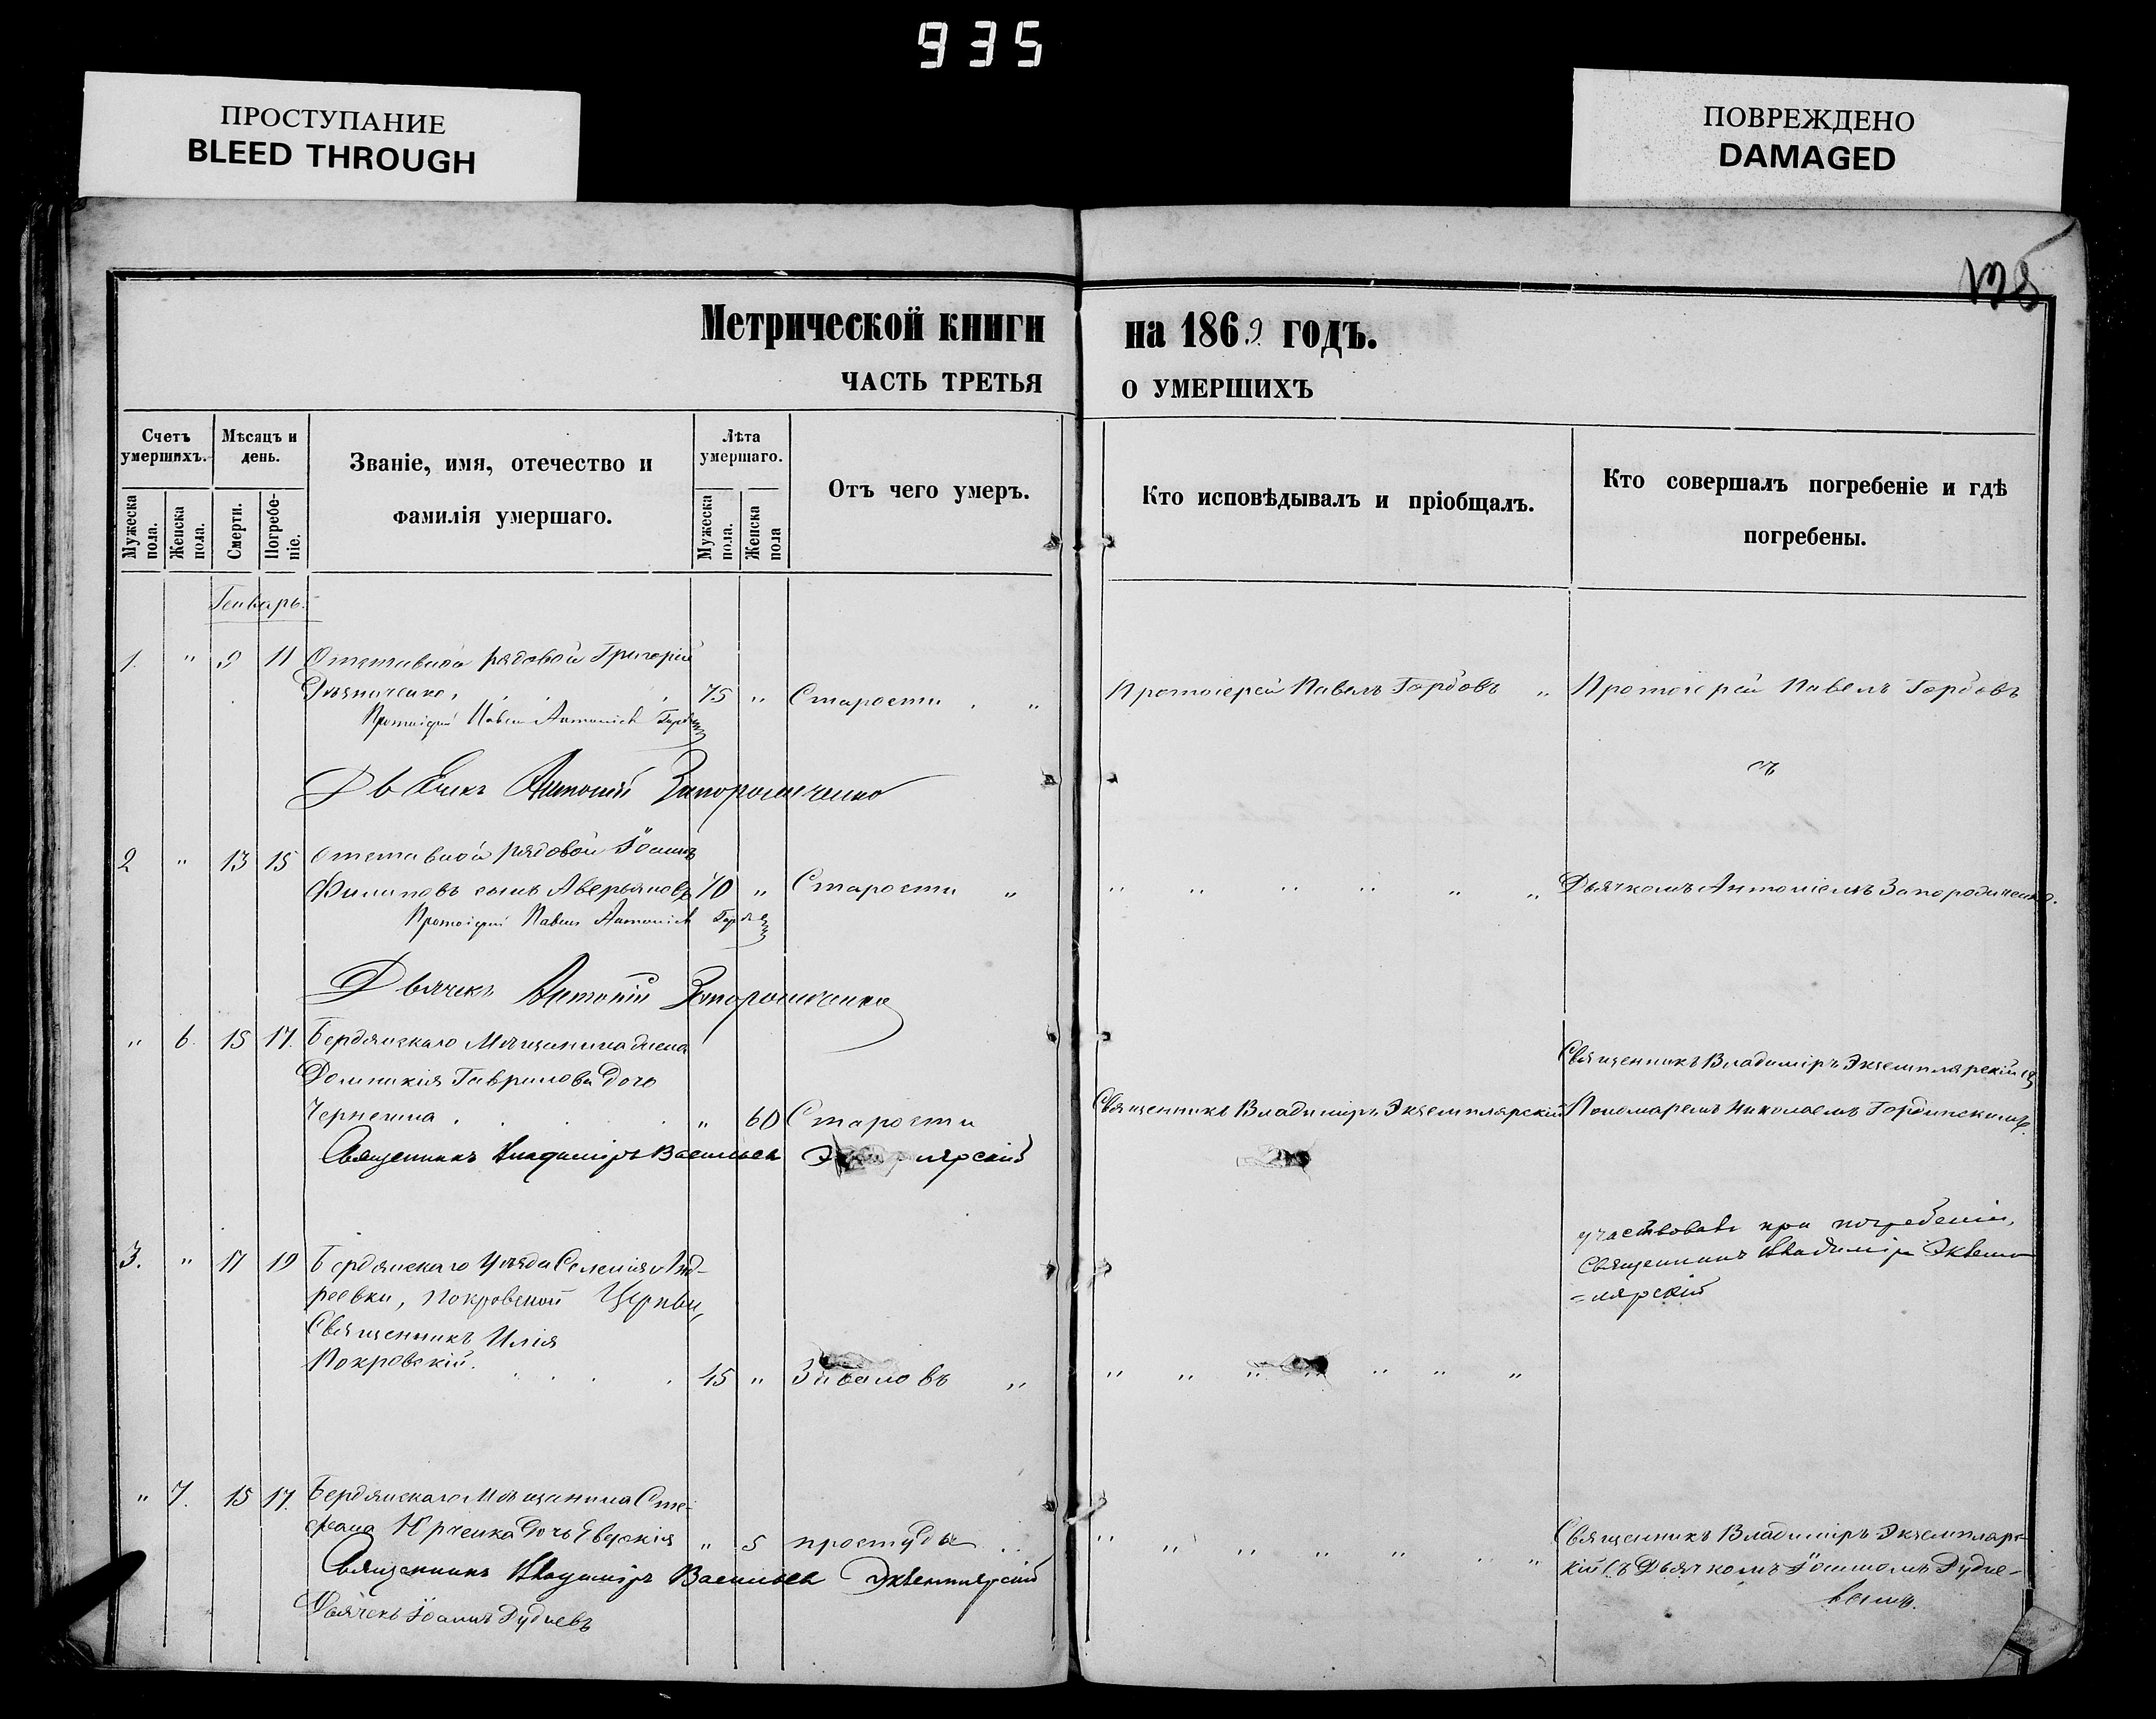 935
ПРОСТУПАНИЕ
BLEED THROUGH
ПОВРЕЖДЕНО
DAMAGED
Метрической книги на 1869 годъ.
ЧАСТЬ ТРЕТЬЯ О УМЕРШИХЪ
Счетъ умершихъ.
Мужеска пола.
Женска пола.
Мѣсяцъ и день.
Смерти.
Погребеніе.
Званіе, имя, отечество и
фамилія умершаго.
Лѣта умершаго.
Мужеска пола.
Женска пола
Отъ чего умеръ.
Кто исповѣдывалъ и пріобщалъ.
Кто совершалъ погребеніе и гдѣ
погребены.
Генварь.
1. " 9 11 Отставной рядовой Григорій
75 " Старости " Протоіерей Павелъ Гордовъ " Протоіерей Павелъ Гордовъ
Протоіерей Павелъ
съ
Антоній
2 " 13 15 Отставной рядовой Іоаннъ
Филиповъ сынъ Аверьяновъ 70 " Старости " " " " " " " Дьячкомъ Антоніемъ
Протоіерей Павелъ
Дьячекъ Антоній
" 6. 15 17. Бердянскаго Мѣщанина
Домникія Гаврилова дочь
Священникъ Владиміръ Экземплярскій съ
" 60 Старости Священникъ Владиміръ Экземплярскій Пономаремъ Николаемъ
Священникъ Владиміръ Васильевъ Экземплярскій
участвовалъ при погребеніи,
Священникъ Владиміръ Экземп
=лярскій
3. " 17 19 Бердянскаго Уѣзда Селенія Анд-
реевки, Покровской Церкви,
Священникъ Илія
Покровскій. 45 " " " " " " " " "
" 7. 15 17. Бердянскаго Мѣщанина Сте-
фана дочь Евдокія " 5 простуды " " " " " " Священникъ Владиміръ Экземпляр-
Священникъ Владиміръ Васильевъ Экземплярскій
кій съ Дьячкомъ Іоанномъ Рудне-
вымъ.
Дьячекъ Іоаннъ Рудневъ